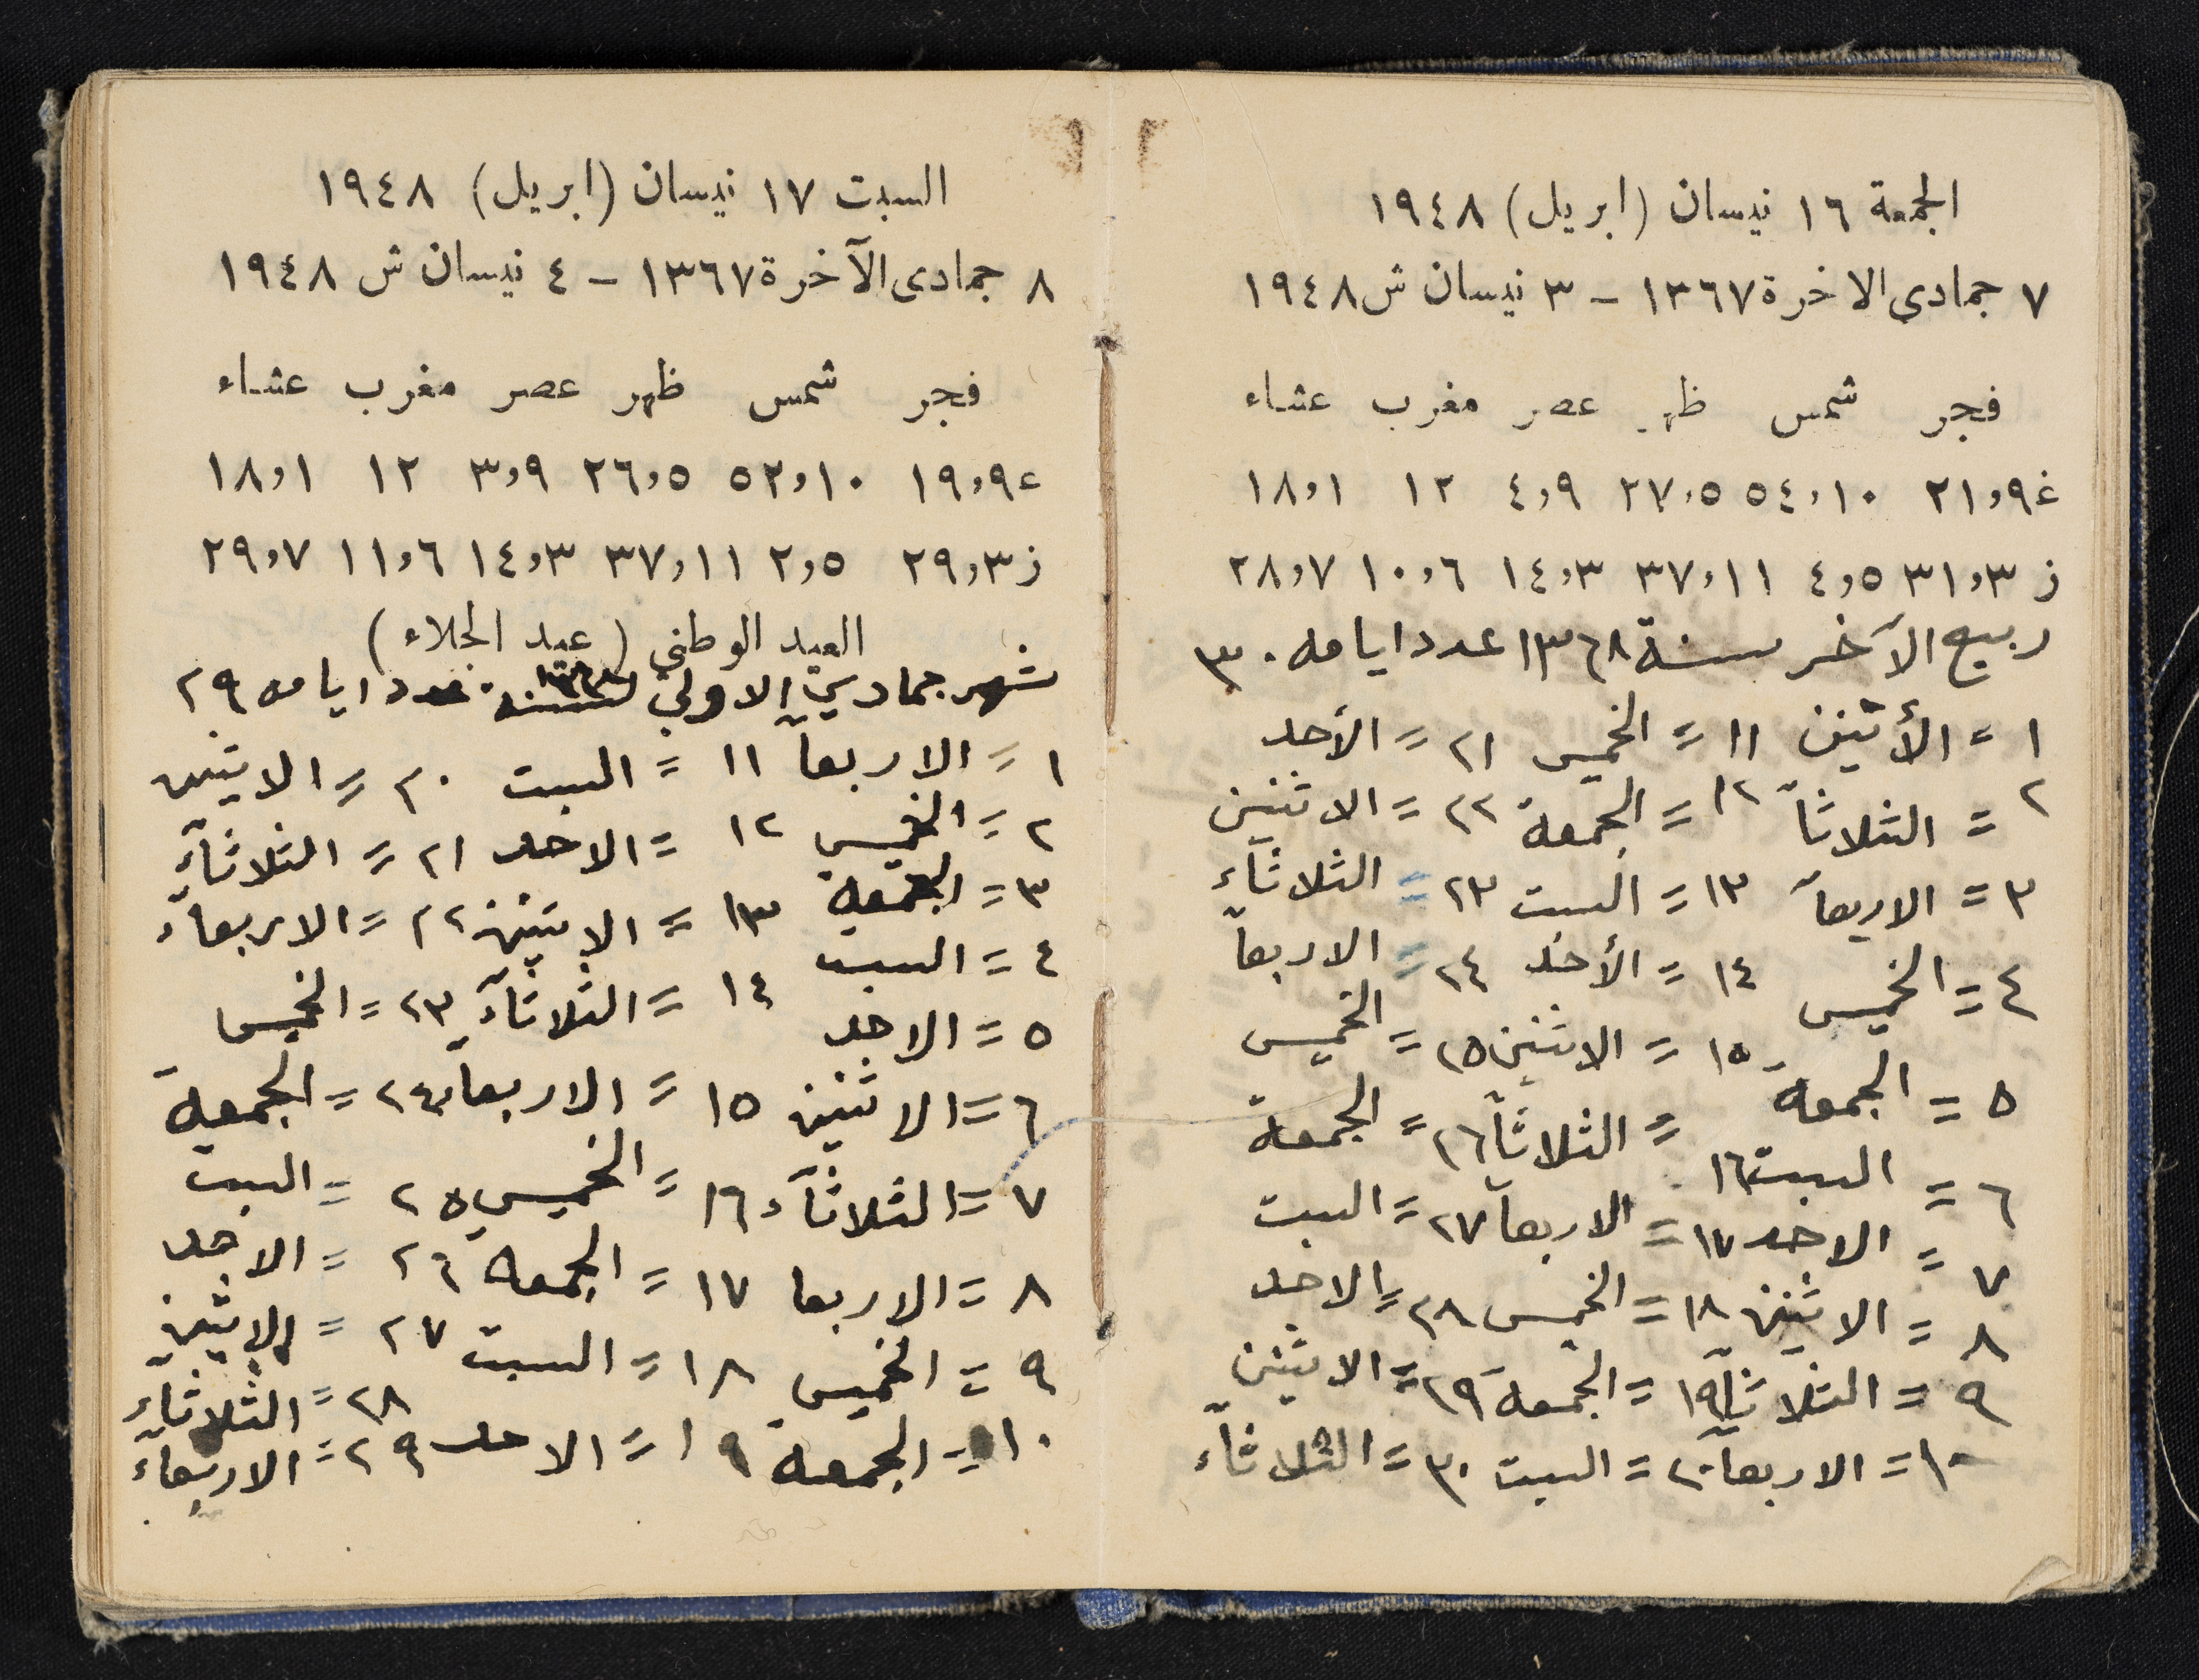 الجمعة ١٦ نيسان (ابريل) ١٩٤٨
٧ جمادى الاخرة ١٣٦٧ - ٣ نيسان ش ١٩٤٨
فجر شمس ظهر عصر مغرب عشاء
غ ٢١,٩ ٥٤,١٠ ٢٧,٥ ٤,٩ ١٢ ١٨,١
ز ٣١,٣ ٤,٥ ٣٧,١١ ١٤,٣ ١٠,٦ ٢٨,٧
ربيع الآخر سنة ١٣٦٨ عدد ايامه ٣٠
١ = الأثنين ١١ = الخميس ٢١ = الأحد
٢ = الثلاثآ ١٢ = الجمعة ٢٢ = الاثنين
٣ = الاربعآ ١٣ = السبت ٢٣ = الثلاثآء
٤ = الخميس ١٤ = الأحد ٢٤ = الاربعآ
٥ = الجمعة ١٥ = الاثنين ٢٥ = الخميس
٦ = السبت ١٦ = الثلاثآ ٢٦ = الجمعة
٧ = الاحد ١٧ = الاربعآ ٢٧ = السبت
٨ = الاثنين ١٨ = الخميس ٢٨ = الاحد
٩ = الثلاثآ ١٩ = الجمعة ٢٩ = الاثنين
١٠ = الاربعآ ٢٠ = السبت ٣٠ = الثلاثآء
السبت ١٧ نيسان (ابريل) ١٩٤٨
٨ جمادى الآخرة ١٣٦٧ - ٤ نيسان ش ١٩٤٨
فجر شمس ظهر عصر مغرب عشاء
غ ١٩,٩ ٥٢,١٠ ٢٦,٥ ٣,٩ ١٢ ١٨,١
ز ٢٩,٣ ٢,٥ ٣٧,١١ ١٤,٣ ١١,٦ ٢٩,٧
العيد الوطني (عيد الجلاء)
شهر جمادي الاولي سنة عدد ايامه ٢٩
١ = الاربعآ ١١ = السبت ٢٠ = الاثنين
٢ = الخميس ١٢ = الاحد ٢١ = الثلاثآء
٣ = الجمعة ١٣ = الاثنين ٢٢ = الاربعآء
٤ = السبت ١٤ = الثلاثآء ٢٣ = الخميس
٥ = الاحد
٦ = الاثنين ١٥ = الاربعآء ٢٤ = الجمعة
٧ = الثلاثآء ١٦ = الخميس ٢٥ = السبت
٨ = الاربعا ١٧ = الجمعة ٢٦ = الاحد
٩ = الخميس ١٨ = السبت ٢٧ = الاثنين
١٠ = الجمعة ١٩ = الاحد ٢٨ = الثلاثآء
٢٩ = الاربعآء